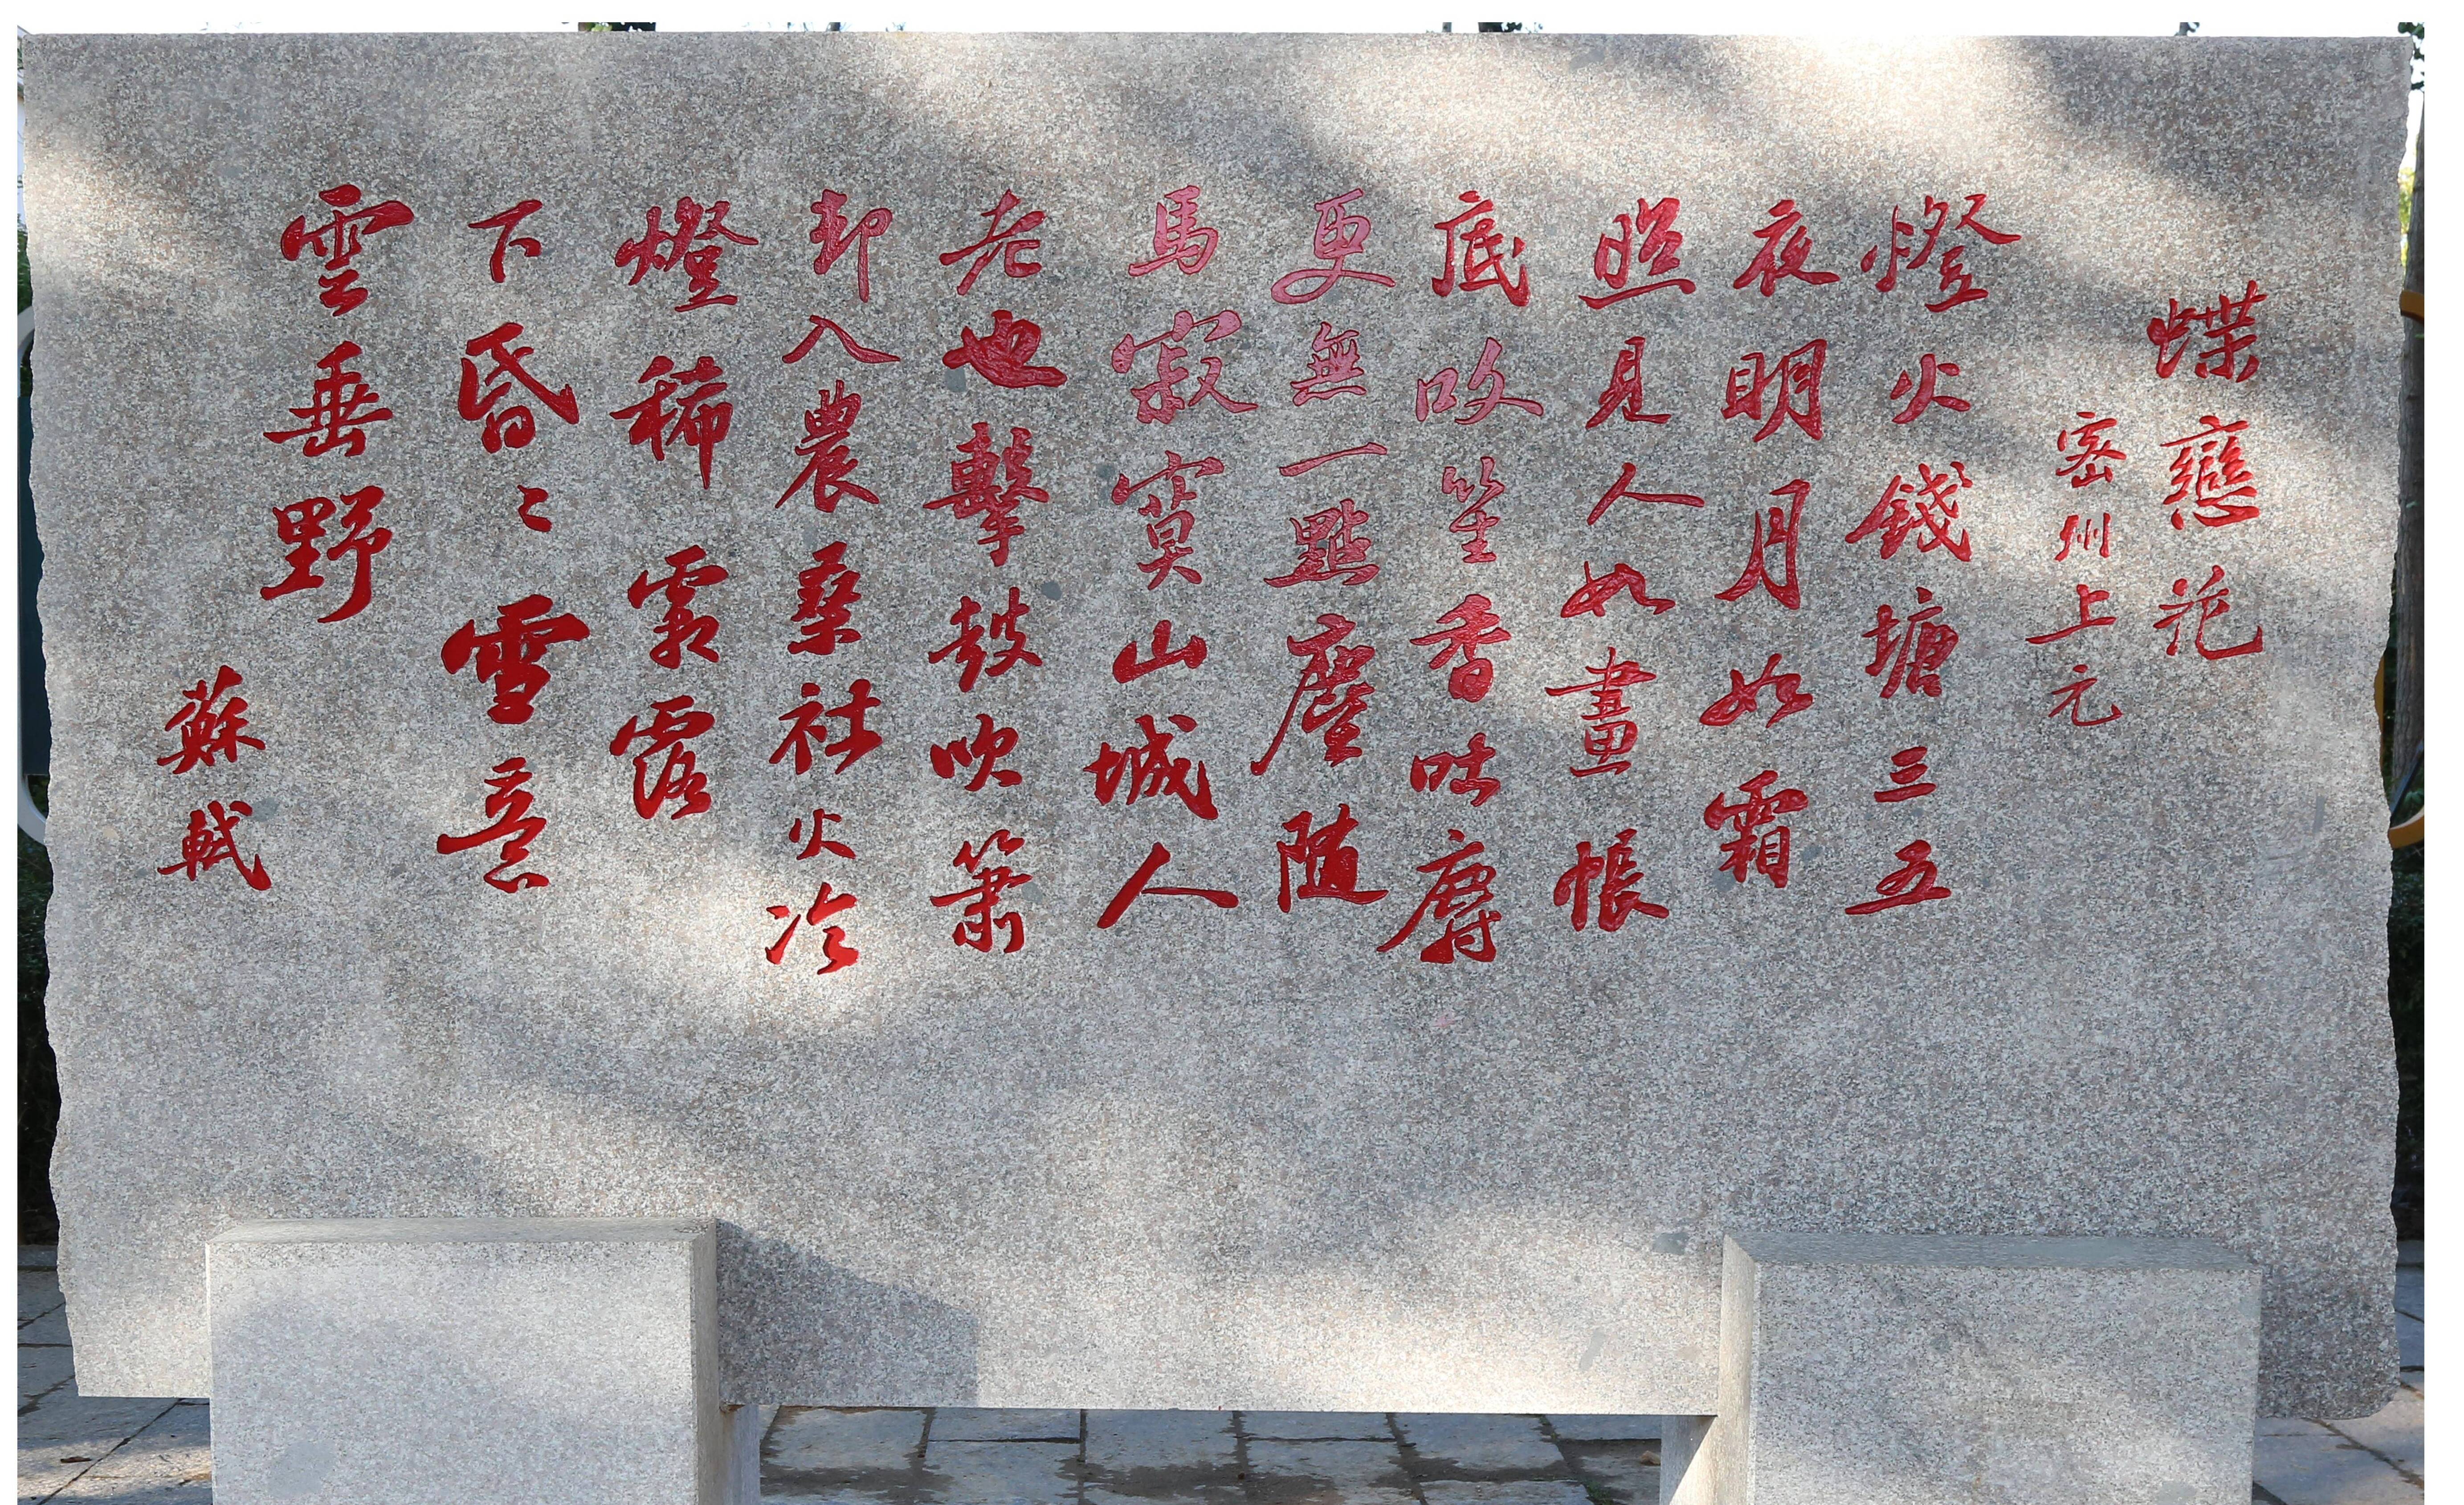 蝶戀花
密州上元
燈火錢塘三五
夜明月如霜
照見人如畫帳
底吹笙香吐麝
更無一點塵隨
馬寂寞山城人
老也擊鼓吹簫
却入農桑社火冷
燈稀霜露
下昏〻雪意
雲垂野
蘇軾